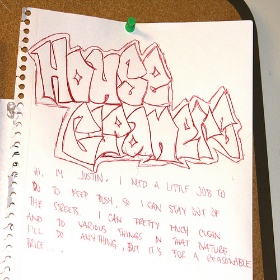 HOUSE
CLEANERS
HI, I'M JUSTIN. I NEED A LITTLE JOB TO
DO TO KEEP BUSY, SO I CAN STAY OUT OF
THE STREETS. I CAN PRETTY MUCH CLEAN
AND DO VARIOUS THINGS IN THAT NATURE
I'LL DO ANYTHING, BUT IT'S FOR A REASONABLE
PRICE...